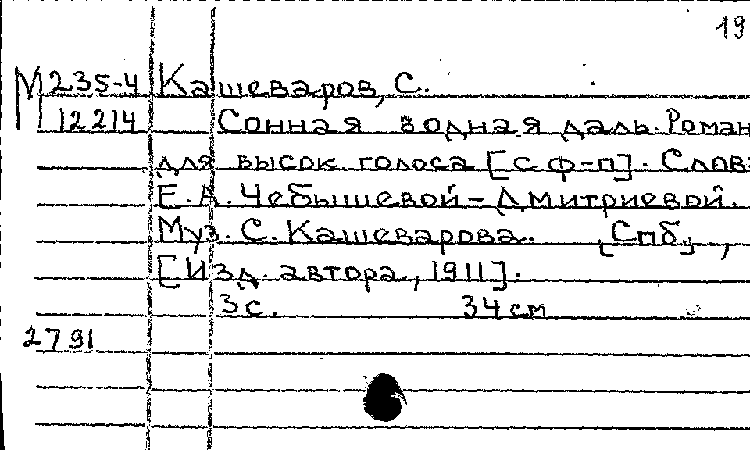 19
М 235-4 Кашеваров, С.
12214 Сонная водная даль. Роман
для высок. голоса [с ф-п]. Слов
Е. А. Чебышевой-Дмитриевой.
Муз. С. Кашеварова. [Спб],
[Изд. автора, 1911].
3 с. 34 см
2791